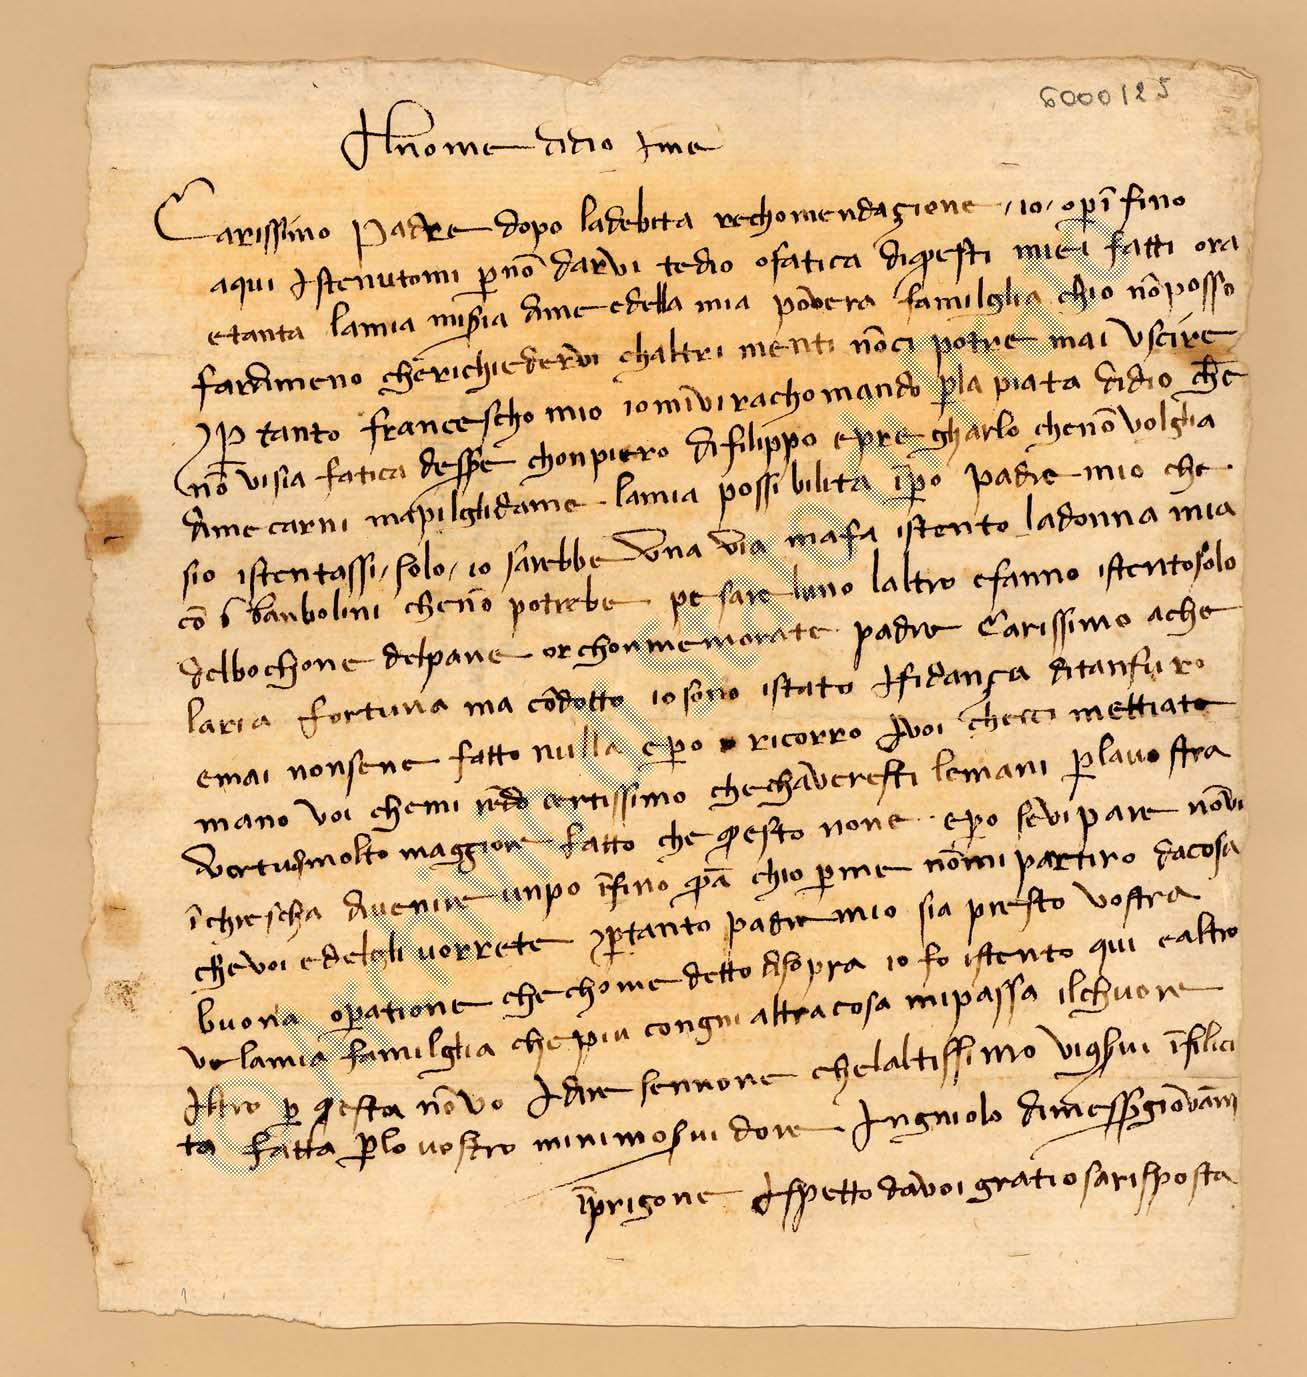 6000125
Al nome didio Ame
Carissimo Padre dopo ladebita rechomendagione io o per īfino
aqui Istenutomi p nō darvi tedio o fatica diq̄sti miei fatti ora
etanta lamia misia dime edella mia povera familglia chio nō posso
fardimeno cherichiedervi chaltri menti nōci potre mai uscire
Ptanto francescho mio io mivirachomando pla piata didio che
nō visia fatica dess̄e chonpiero difilippo epregharlo chenō volglia
dime carni mapilglidame lamia possibilita īpo padre mio che
sio istentassi solo io sarebbe una via mafa istento ladonna mia
cō 6 banbolini chenō potrebe pesare luno laltro efanno istento solo
delbochone delpane or chonmemorate padre Carissimo ache
laria fortuna ma cōdotto io sono istato Ifidança ditanfuro
emai nonsene fatto nulla epo ricorro Avoi checci mettiate
mano voi chemi rēdo certissimo chechavereste lemani plavostra
vertu molto maggiore fatto che q̄esto none epo sevipare nōvi
īchrescha divenire unpo īfino q̄a chio pme nōmi partiro dacosa
chevoi edelgli vorrete Ptanto padre mio sia presto vostra
buona opatione che chome detto disopra io fo istento qui ealtro
ve lamia familglia chepiu congni altra cosa mipassa ilchuore
Altro p q̄esta nōvo Adire sennone chelaltissimo vi īfilici
ta fatta plo vostro minimo svidore Ingniolo dimess giovāni
īprigone Aspetto davoi gratiosa risposta